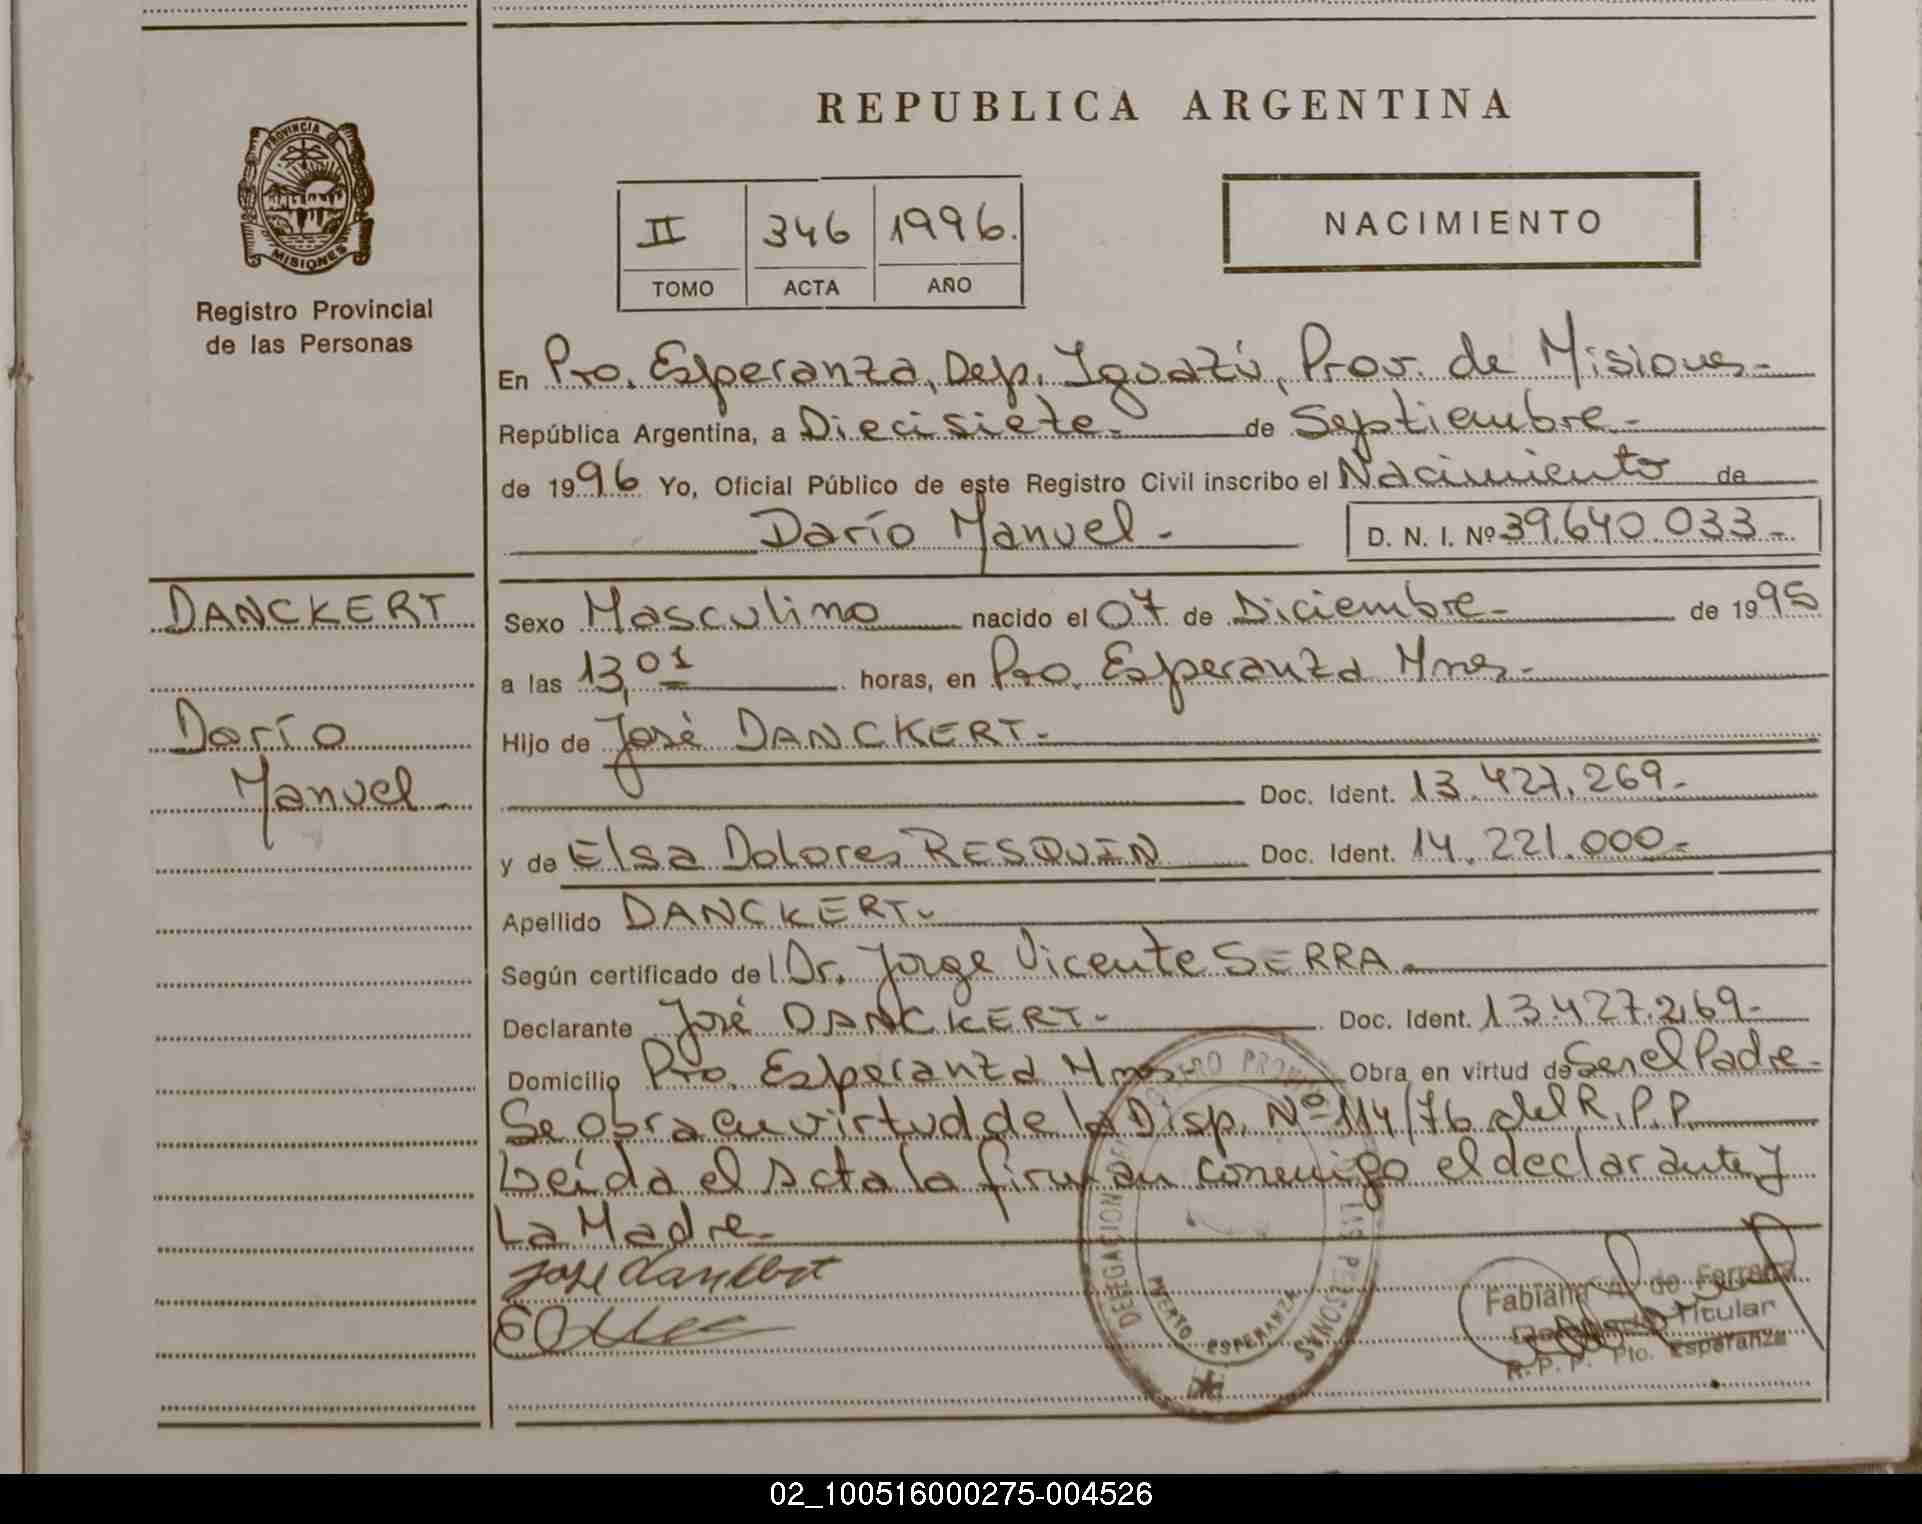 REPUBLICA ARGENTINA
PROVINCIA DE
MISIONES
Registro Provincial
de las Personas
II 346 1996.
TOMO ACTA AÑO
NACIMIENTO
En Pto. Esperanza, Dep. Iguazú, Prov. de Misiones-
República Argentina, a Diecisiete- de Septiembre-
de 1996 Yo, Oficial Público de este Registro Civil inscribo el Nacimiento de
Darío Manuel- D. N. I. Nº 39.640.033-
DANCKERT
Darío
Manuel-
Sexo Masculino nacido el 07 de Diciembre- de 1995
a las 13,01 horas, en Pto. Esperanza Mnes-
Hijo de José DANCKERT-
Doc. Ident. 13.427.269-
y de Elsa Dolores RESQUIN Doc. Ident. 14.221.000-
Apellido DANCKERT-
Según certificado del Dr. Jorge Vicente SERRA-
Declarante José DANCKERT- Doc. Ident. 13.427.269-
Domicilio Pto. Esperanza Mnes- Obra en virtud de Ser el Padre-
Se obra en virtud de la Disp. Nº 114/76 del R.P.P.
Leída el Acta la firman conmigo el declarante y
La Madre-
DELEGACION DE LAS PERSONAS
PUERTO ESPERANZA
Fabiana A. de Ferreira
Titular
R. P. P. Pto. Esperanza
02_100516000275-004526